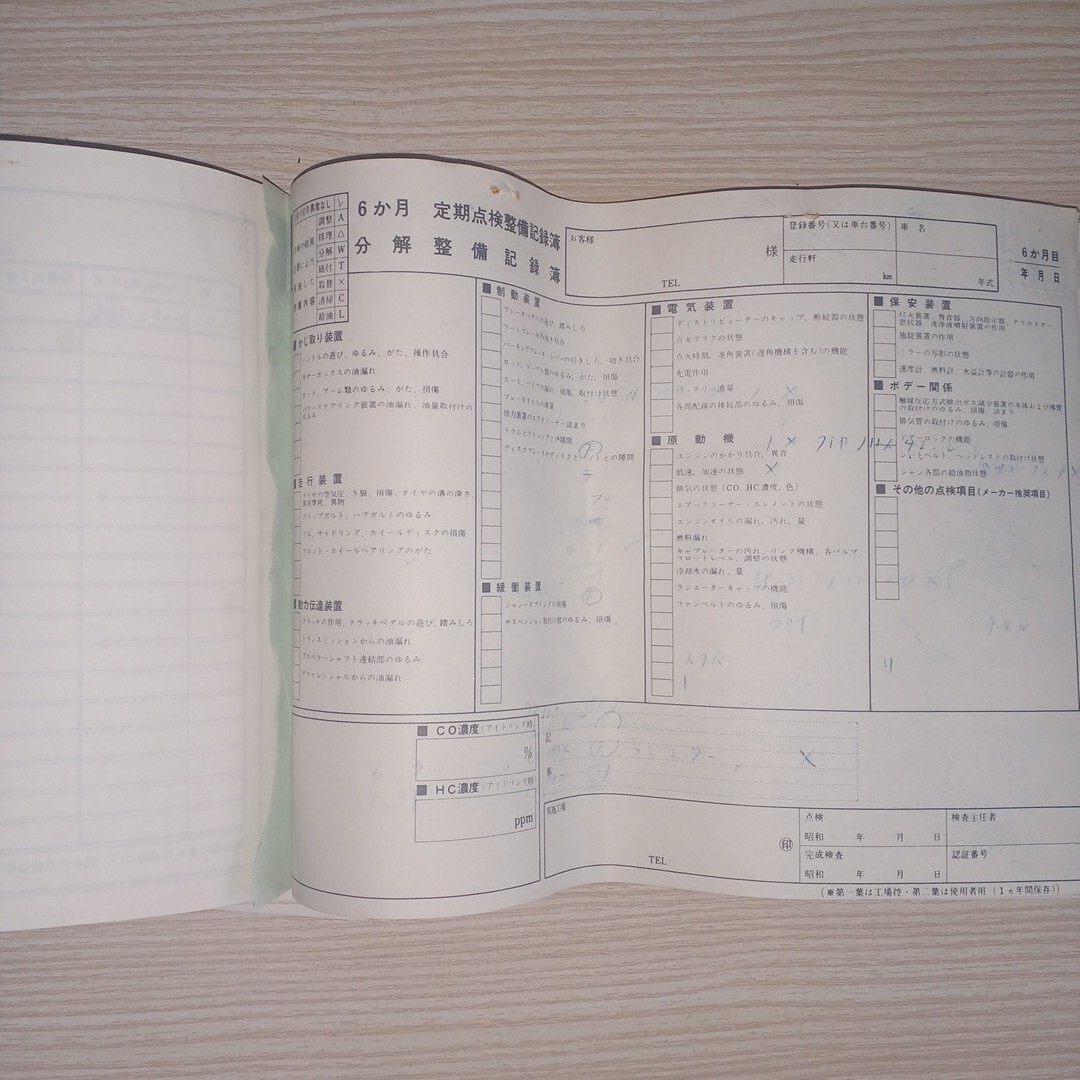 6か月 定期点検整備記録簿
分解整備記録簿
調整 A
修理 △
分解 W
締付 T
取替 ×
清掃 C
給油 L
お客様
様
TEL
登録番号(又は車台番号)
車 名
走行軒
km
年式
6か月目
年 月 日
■かじ取り装置
ハンドルの遊び、ゆるみ、がた、操作具合
ギヤーボックスの油漏れ
ロッド、アーム類のゆるみ、がた、損傷
パワーステアリング装置の油漏れ、油量取付けのゆるみ
■走行装置
タイヤの空気圧、き裂、損傷、タイヤの溝の深さ、
クリップボルト、ハブボルトのゆるみ
リム、サイドリング、ホイールディスクの損傷
フロント・ホイールベアリングのがた
■動力伝達装置
クラッチの作用、クラッチペダルの遊び、踏みしろ
トランスミッションからの油漏れ
プロペラーシャフト連結部のゆるみ
デファレンシャルからの油漏れ
■制動装置
ブレーキペダルの遊び、踏みしろ
フートブレーキの効き具合
パーキングブレーキレーバーの引きしろ、効き具合
ロッド、ケーブル類のゆるみ、がた、損傷
ホース、パイプの漏れ、損傷、取付け状態
ブレーキオイルの液量
倍力装置のエヤクリーナー詰まり
ドラムとライニングとの隙間
ディスクブレーキのディスクとパットとの隙間
■緩衝装置
シャシースプリングの損傷
サスペンション取付け部のゆるみ、損傷
■電気装置
ディストリビューターのキャップ、断続器の状態
点火プラグの状態
点火時期、進角装置(遅角機構を含む)の機能
充電作用
バッテリー液量
各部配線の接続部のゆるみ、損傷
■原動機
エンジンのかかり具合、異音
低速、加速の状態
排気の状態(CO、HC濃度、色)
エアークリーナー・エレメントの状態
エンジンオイルの漏れ、汚れ、量
燃料漏れ
キャブレーターの汚れ、リンク機構、各バルブ、
フロートレベル、調整の状態
冷却水の漏れ、量
ラジエーターキャップの機能
ファンベルトのゆるみ、損傷
■保安装置
灯火装置、警音器、方向指示器、デフロスター、
窓拭器、洗浄液噴射装置の作用
施錠装置の作用
ミラーの写影の状態
速度計、燃料計、水温計等の計器の作用
■ボデー関係
触媒反応方式排出ガス減少装置の本体および導管
の取付けのゆるみ、損傷、詰まり
排気管の取付けのゆるみ、損傷
ドアーロックの機能
シートベルト、ヘッドレストの取付け状態
シャシ各部の給油脂状態
■その他の点検項目(メーカー推奨項目)
■CO濃度(アイドリング時)
%
■HC濃度(アイドリング時)
ppm
記
事
実施工場
TEL
印
点検
昭和 年 月 日
完成検査
昭和 年 月 日
検査主任者
認証番号
(※第一葉は工場控・第二葉は使用者用(1ヵ年間保存))